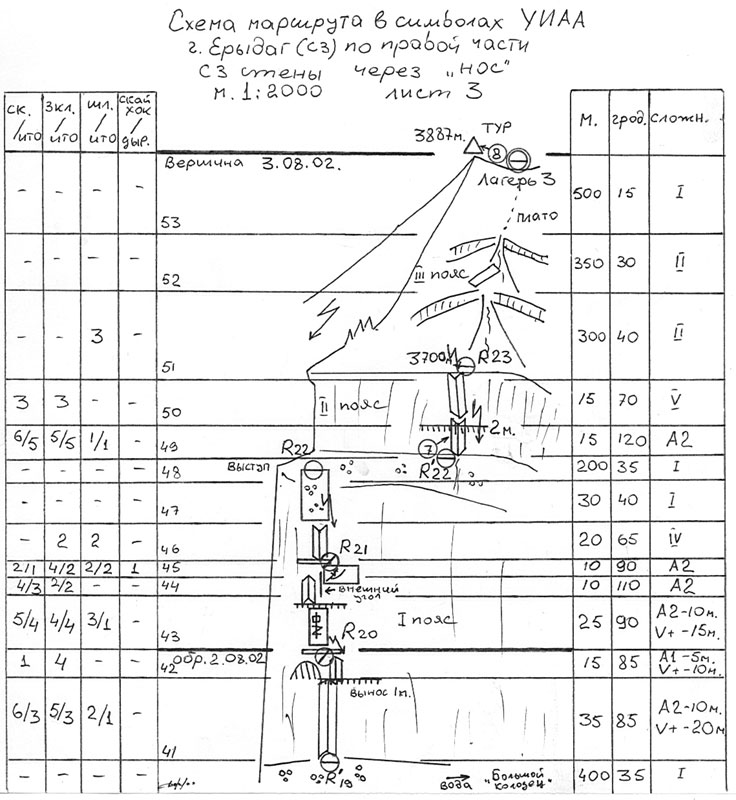 Схема маршрута в символах УИАА
г. Ерыдаг (СЗ) по правой части
СЗ стены через „НОС"
М. 1:2000 лист 3
СК./ИТО ЗКЛ./ИТО ШЛ./ИТО СКАЙ ХОК/ДЫР. М. ГРАД. СЛОЖН.
3887м. ТУР
8
Вершина 3.08.02.
Лагерь 3
- - - - 53 500 15 I
плато
- - - - 52 III пояс 350 30 II
- - 3 - 51 300 40 II
3700м R23
3 3 - - 50 II пояс 15 70 V
6/5 5/5 1/1 - 49 2м. 15 120 A2
7
R22 R'22
- - - - 48 выступ 200 35 I
- - - - 47 30 40 I
- 2 2 - 46 20 65 IV
R21
2/1 4/2 2/2 1 45 10 90 A2
4/3 2/2 - - 44 10 110 A2
внешний
угол
5/4 4/4 3/1 - 43 I пояс 25 90 A2-10м.
V+-15м.
R20
1 4 - - 42 обр. 2.08.02 15 85 A1-5м.
V+-10м.
вынос 1м.
6/3 5/3 2/1 - 41 35 85 A2-10м.
V+-20м
- - - - R'19 400 35 I
вода „Большой
колодец"